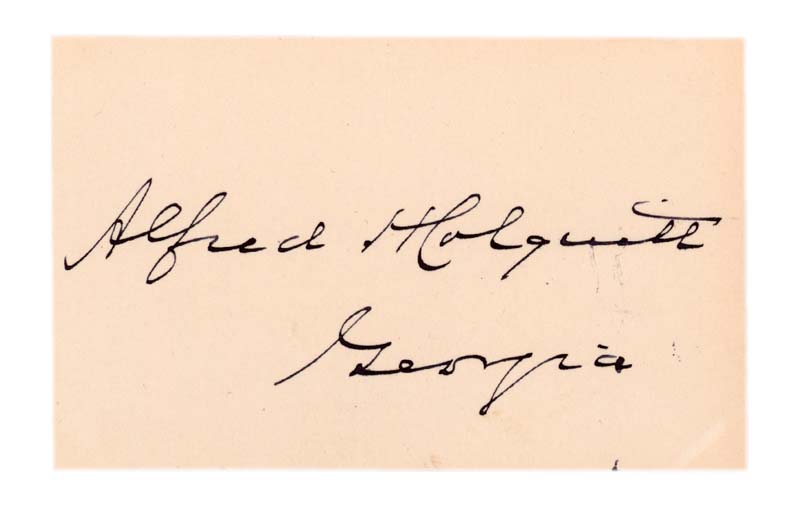 Alfred H Colquitt
Georgia